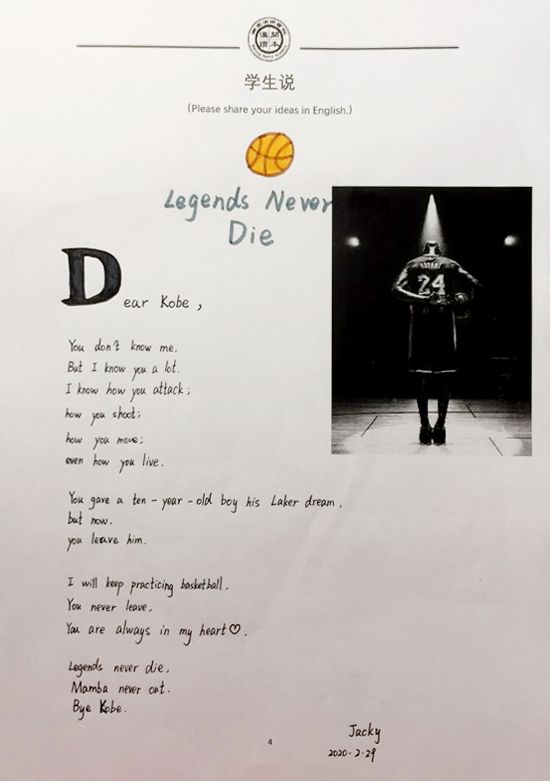 学生说
(Please share your ideas in English.)
Legends Never
Die
Dear Kobe,
You don't know me.
But I know you a lot.
I know how you attack;
how you shoot;
how you move;
even how you live.
You gave a ten-year-old boy his Laker dream,
but now,
you leave him.
I will keep practicing basketball.
You never leave.
You are always in my heart♡.
Legends never die.
Mamba never out.
Bye Kobe.
24
Jacky
2020.2.29
4